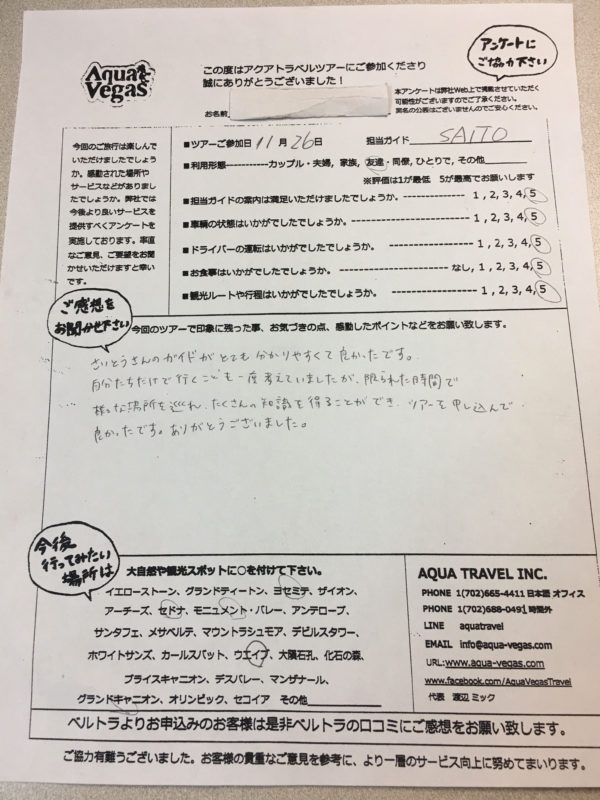 アンケートに
ご協力下さい
Aqua
Vegas
この度はアクアトラベルツアーにご参加くださり
誠にありがとうございました!
本アンケートは弊社Web上で掲載させていただく
可能性がございますのでご了承ください。
実名の公表はございませんのでご安心ください。
お名前
今回のご旅行は楽しんで
いただけましたでしょう
か。感動された場所や
サービスなどがありまし
たでしょうか。弊社では
今後より良いサービスを
提供すべくアンケートを
実施しております。率直
なご意見、ご要望をお聞
かせいただけますと幸い
です。
■ツアーご参加日 11 月 26日 担当ガイド SAITO
■利用形態-----------カップル・夫婦, 家族, 友達・同僚, ひとりで, その他
※評価は1が最低 5が最高でお願いします
■担当ガイドの案内は満足いただけましたでしょうか。 ------------ 1, 2, 3, 4, 5
■車輌の状態はいかがでしたでしょうか。 ------------------ 1, 2, 3, 4, 5
■ドライバーの運転はいかがでしたでしょうか。 ---------------- 1, 2, 3, 4, 5
■お食事はいかがでしたでしょうか。 ---------------- なし, 1, 2, 3, 4, 5
■観光ルートや行程はいかがでしたでしょうか。 ---------------- 1, 2, 3, 4, 5
ご感想を
お聞かせ下さい
今回のツアーで印象に残った事、お気づきの点、感動したポイントなどをお願い致します。
さいとうさんのガイドがとても分かりやすくて良かったです。
自分たちだけで行くことも一度考えていましたが、限られた時間で
様々な場所を巡れ、たくさんの知識を得ることができ、ツアーを申し込んで
良かったです。ありがとうございました。
今後
行ってみたい
場所は
大自然や観光スポットに○を付けて下さい。
イエローストーン、グランドティートン、ヨセミテ、ザイオン、
アーチーズ、セドナ、モニュメント・バレー、アンテロープ、
サンタフェ、メサベルテ、マウントラシュモア、デビルスタワー、
ホワイトサンズ、カールスバット、ウエイブ、大隕石孔、化石の森、
ブライスキャニオン、デスバレー、マンザナール、
グランドキャニオン、オリンピック、セコイア その他
AQUA TRAVEL INC.
PHONE 1(702)665-4411 日本語 オフィス
PHONE 1(702)688-0491 時間外
LINE aquatravel
EMAIL info@aqua-vegas.com
URL:www.aqua-vegas.com
www.facebook.com/AquaVegasTravel
代表 渡辺 ミック
ベルトラよりお申込みのお客様は是非ベルトラの口コミにご感想をお願い致します。
ご協力有難うございました。お客様の貴重なご意見を参考に、より一層のサービス向上に努めてまいります。